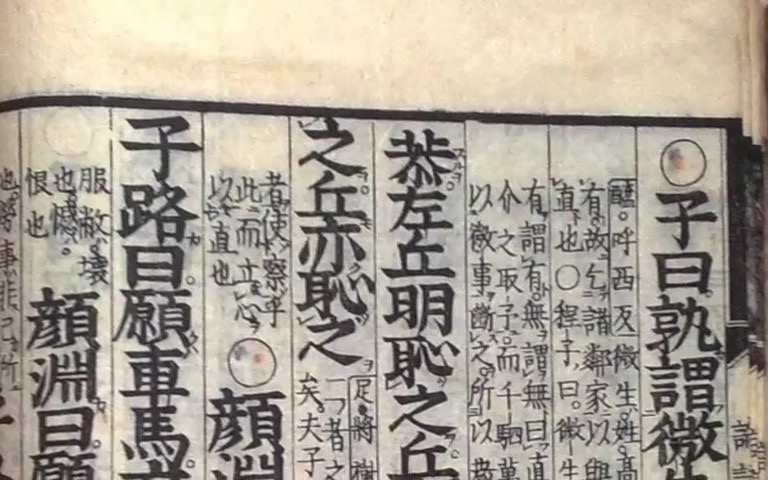 ○子曰孰謂微生
醯。呼西反微生。姓。高
有故乞諸鄰家以與
直也○程子曰。微生
有謂有。無謂無曰直
介之取予。而千駟萬
以微事斷之。所以教
恭左丘明恥之丘
之丘亦恥之
足。將樹
二者之
矣。夫子
者使察乎
此而立心
以直也
○顏淵
子路曰願車馬
服敝壞
也憾。
恨也
顏淵曰願
也。勞事非己所